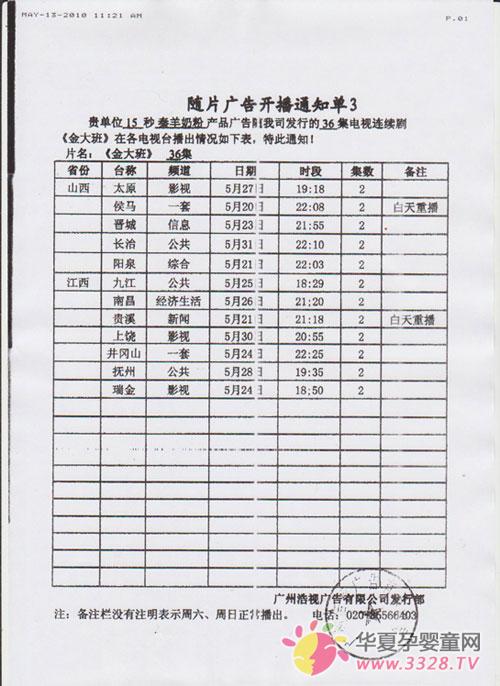 MAY-13-2010 11:21 AM P.01
随片广告开播通知单3
贵单位 15 秒 羊奶粉 产品广告 我司发行的 36 集电视连续剧
《金大班》在各电视台播出情况如下表，特此通知！
片名：《金大班》 36集
省份 台称 频道 日期 时段 集数 备注
山西 太原 影视 5月27日 19:18 2
侯马 一套 5月20日 22:08 2 白天重播
晋城 信息 5月23日 21:55 2
长治 公共 5月31日 22:10 2
阳泉 综合 5月21日 22:03 2
江西 九江 公共 5月25日 18:29 2
南昌 经济生活 5月26日 21:20 2
贵溪 新闻 5月21日 21:18 2 白天重播
上饶 影视 5月30日 20:55 2
井冈山 一套 5月24日 22:25 2
抚州 公共 5月28日 19:35 2
瑞金 影视 5月24日 18:50 2
广州浩视广告有限公司发行部
注：备注栏没有注明表示周六、周日正常播出。 电话：
华夏孕婴童网
www.3328.TV